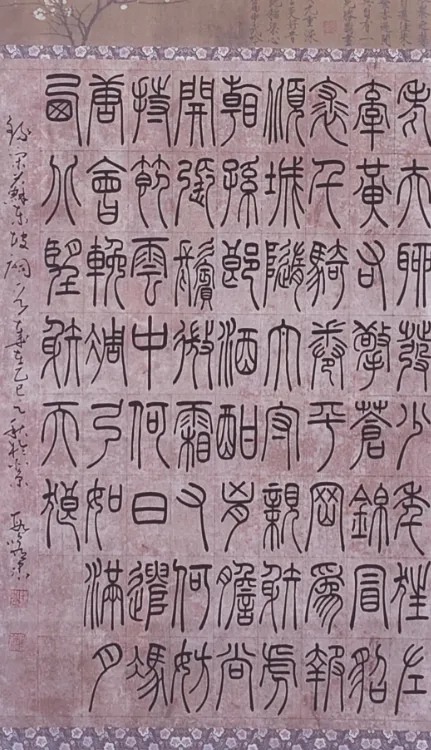 老夫聊發少年狂左
牽黃右擎蒼錦冒貂
裘千騎卷平岡為報
傾城隨太守親射虎
看孫郎酒酣胸膽尚
開張鬢微霜又何妨
持節雲中何日遣馮
唐會挽雕弓如滿月
西北望射天狼
錄宋蘇東坡詞歲在乙巳